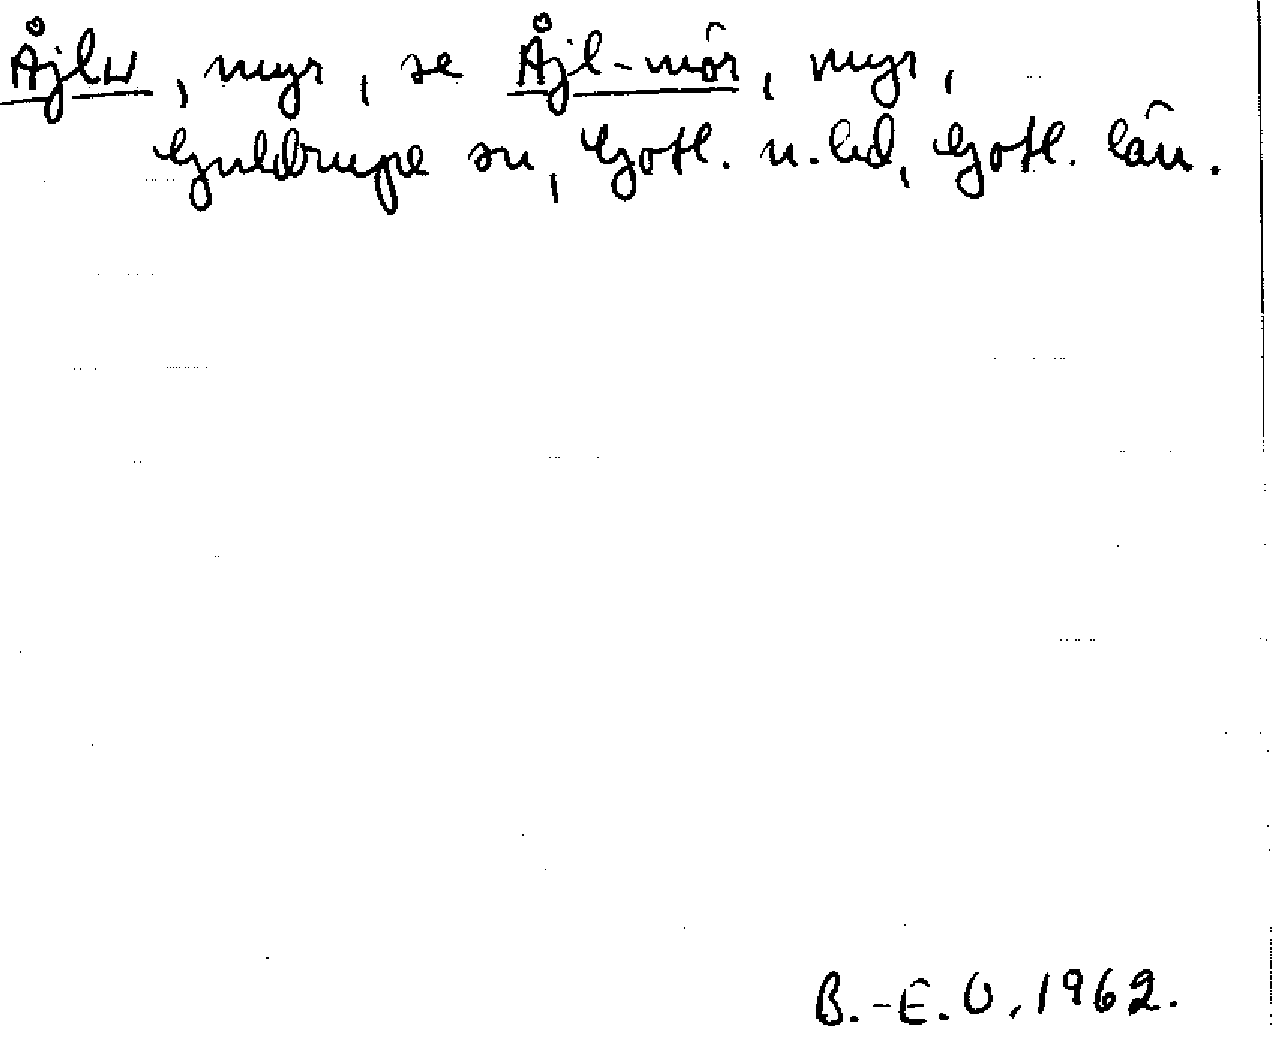 Åjlu, myr, se Åjl-mör, myr,
Guldrupe sn, Gotl. n. hd, Gotl. län.
B.-E. O, 1962.